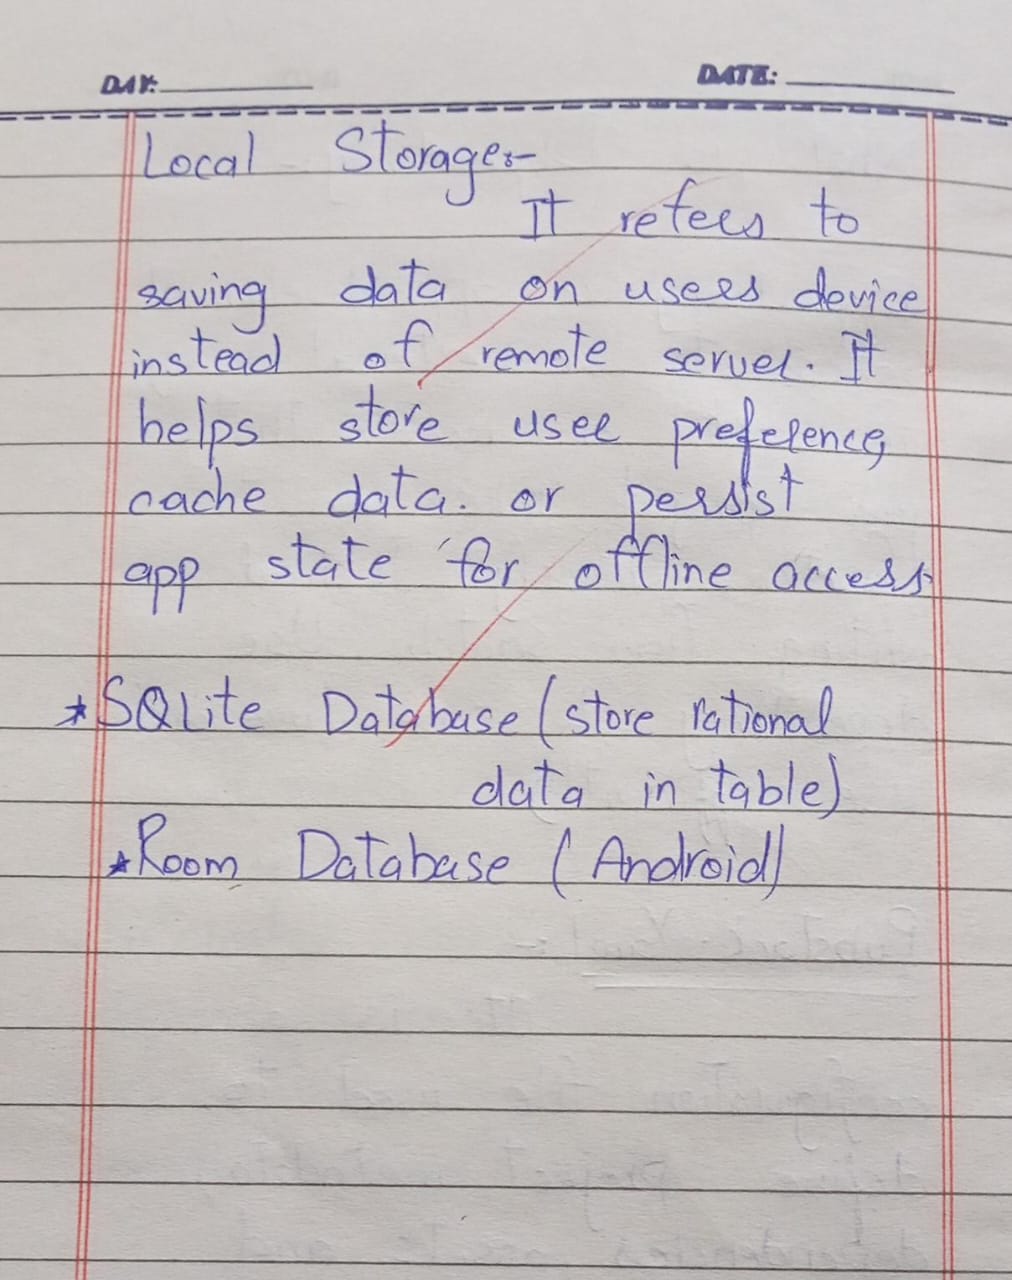 DAY:
DATE:
Local Storage:-
It refers to
saving data on users device
instead of remote server. It
helps store user preference,
cache data. or persist
app state for offline access
* SQLite Database (store rational
data in table)
* Room Database (Android)